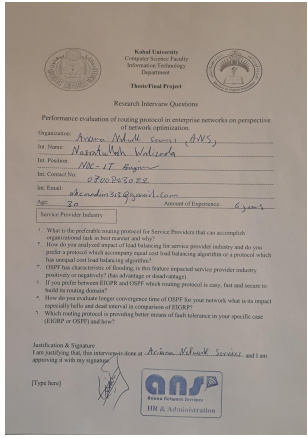 Kabul University
Computer Science Faculty
Information Technology
Department
Thesis/Final Project
Research Interview Questions
Performance evaluation of routing protocol in enterprise networks on perspective
of network optimization.
Organization: Ariana Network Services (ANS)
Int. Name:
Int. Position: NOC-IT Engineer
Int. Contact No:
Int. Email:
Age: 30 Amount of Experience: 6 years
Service Provider Industry
1. What is the preferable routing protocol for Service Providers that can accomplish
organizational task in best manner and why?
2. How do you analyzed impact of load balancing for service provider industry and do you
prefer a protocol which accompany equal cost load balancing algorithm or a protocol which
has unequal cost load balancing algorithm?
3. OSPF has characteristic of flooding, is this feature impacted service provider industry
positively or negatively? (his advantage or disadvantage)
4. If you prefer between EIGRP and OSPF which routing protocol is easy, fast and secure to
build its routing domain?
5. How do you evaluate longer convergence time of OSPF for your network what is its impact
especially hello and dead interval in comparison of EIGRP?
6. Which routing protocol is providing better means of fault tolerance in your specific case
(EIGRP or OSPF) and how?
Justification & Signature
I am justifying that, this interview is done at Ariana Network Services and I am
approving it with my signature.
[Type here]
ans
Ariana Network Services
HR & Administration